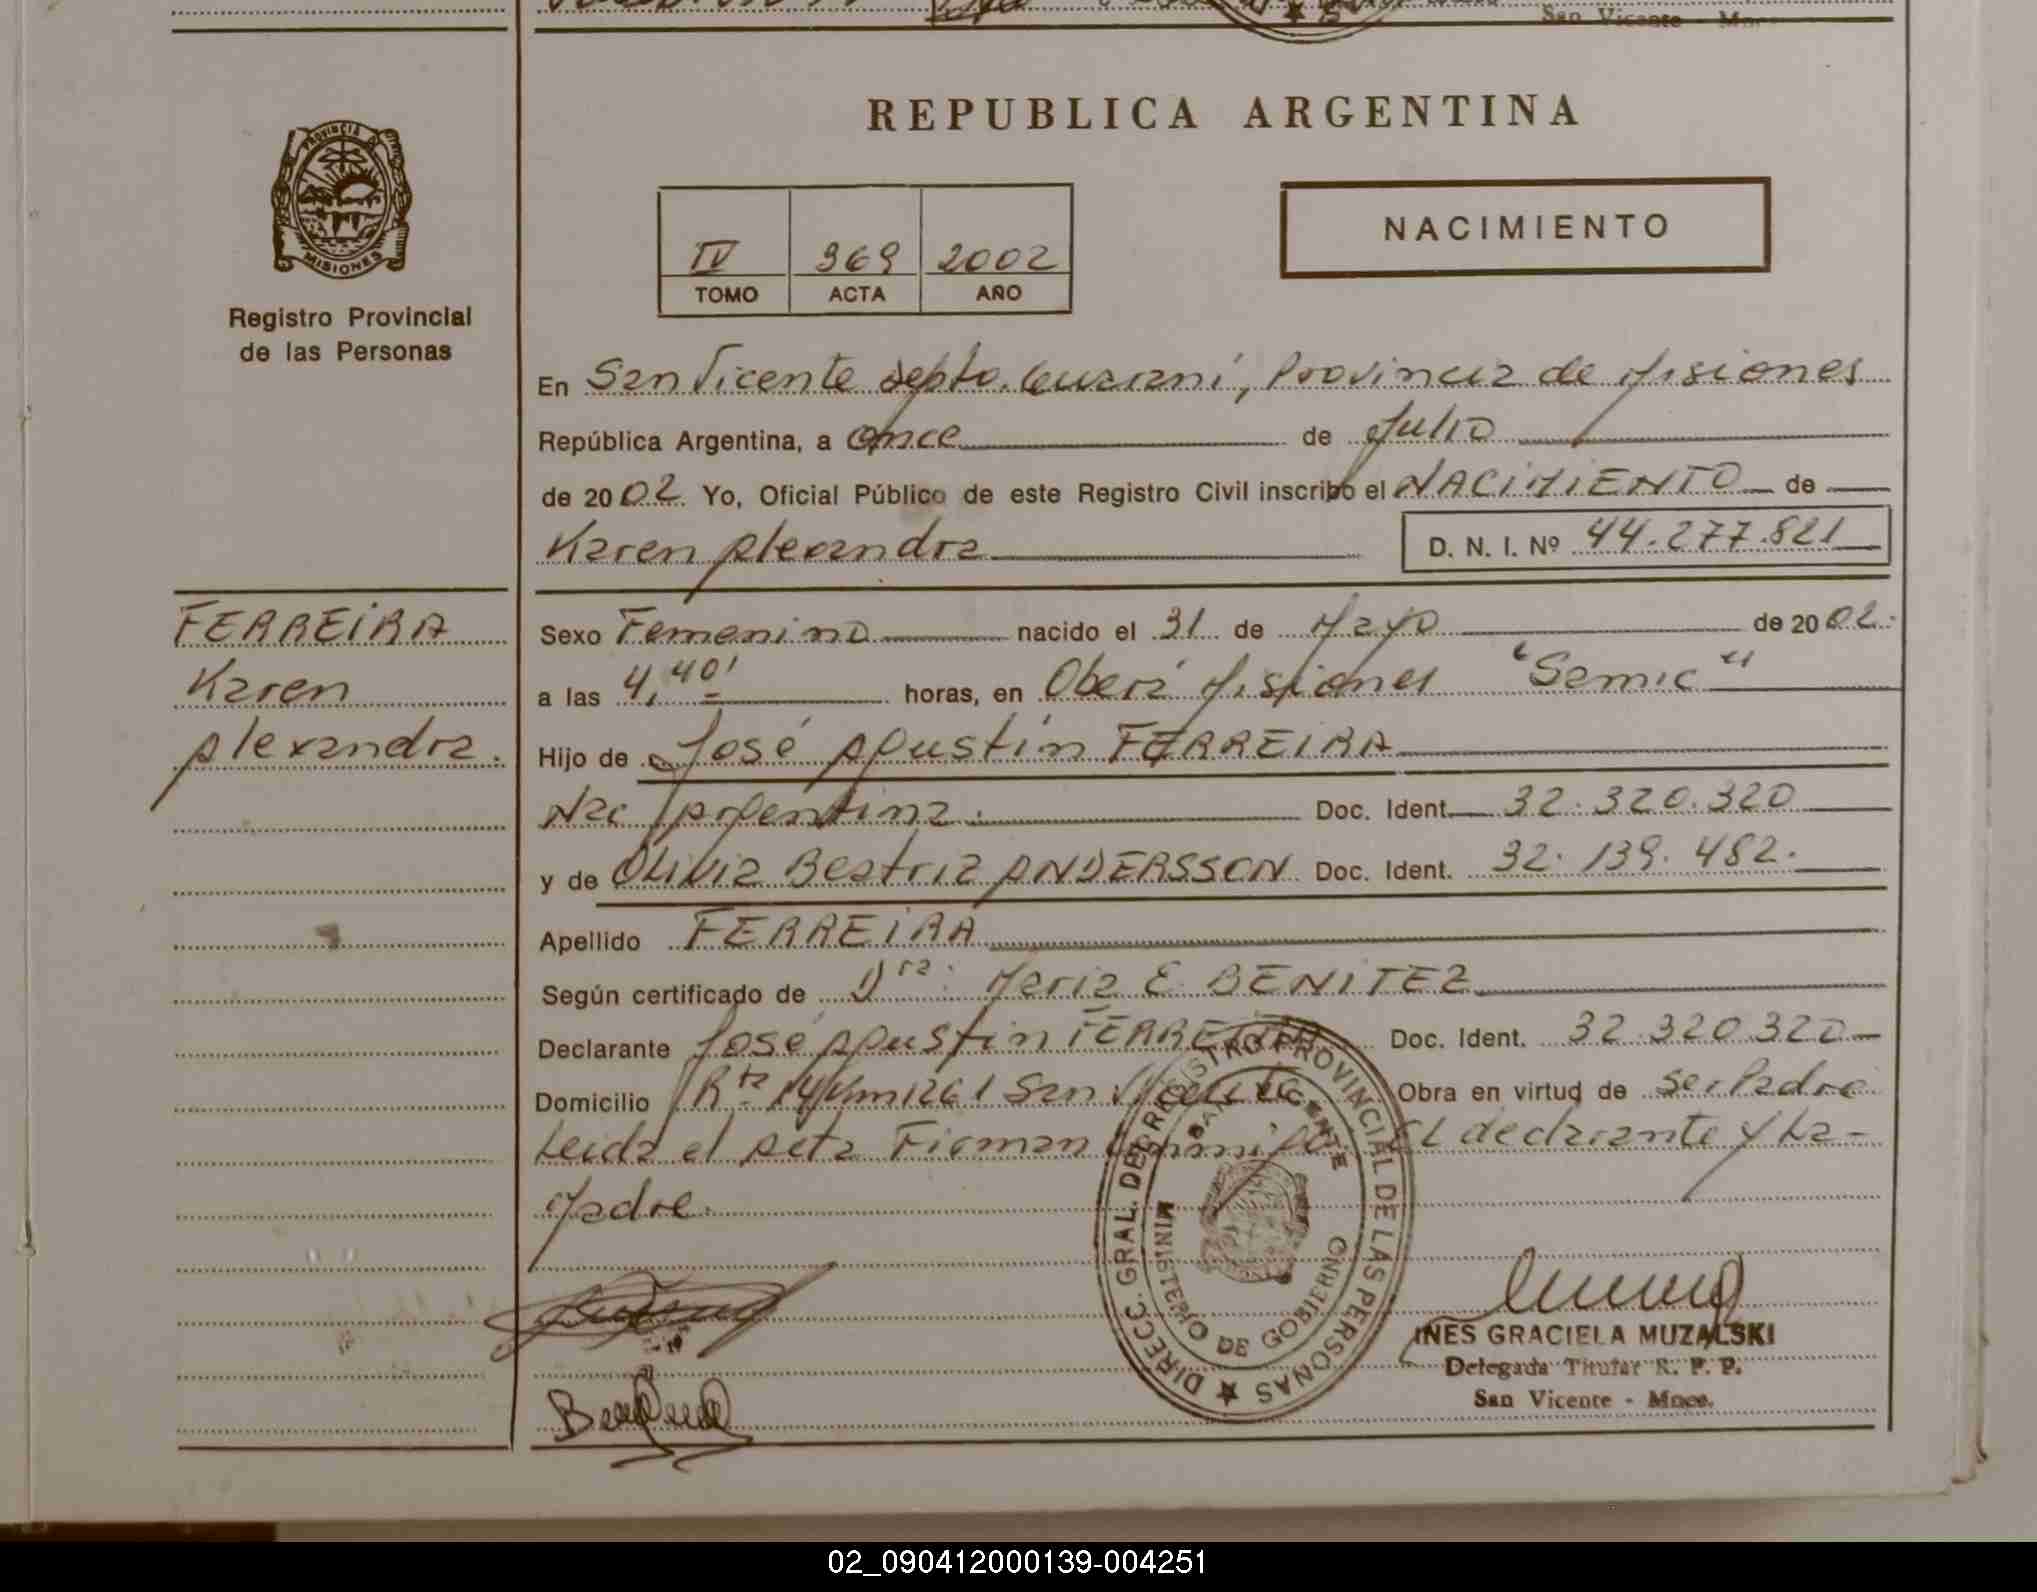 San Vicente - Mnes.
PROVINCIA DE
MISIONES
Registro Provincial
de las Personas
REPUBLICA ARGENTINA
NACIMIENTO
IV 369 2002
TOMO ACTA AÑO
En San Vicente depto. Guaraní, Provincia de Misiones
República Argentina, a once de Julio
de 2002 Yo, Oficial Público de este Registro Civil inscribo el NACIMIENTO de
Karen Aleandra D. N. I. Nº 44.277.821
FERREIRA
Karen
Alexandra.
Sexo Femenino nacido el 31 de Mayo de 2002.
a las 4,40' horas, en Oberá Misiones "Samic"
Hijo de José Agustín FERREIRA
Nac Argentina. Doc. Ident. 32.320.320
y de Olivia Beatriz ANDERSSON Doc. Ident. 32.139.482.
Apellido FERREIRA
Según certificado de Dra. María E. BENITEZ
Declarante José Agustin FERREIRA Doc. Ident. 32.320.320
Domicilio Rta 14 Km 1261 San Vicente Obra en virtud de ser Padre
Leida el Acta Firman conmigo El declarante y La-
Madre.
DIRECC. GRAL. DEL REGISTRO PROVINCIAL DE LAS PERSONAS
SAN VICENTE
MINISTERIO DE GOBIERNO
INES GRACIELA MUZALSKI
Delegada Titular R. P. P.
San Vicente - Mnes.
02_090412000139-004251